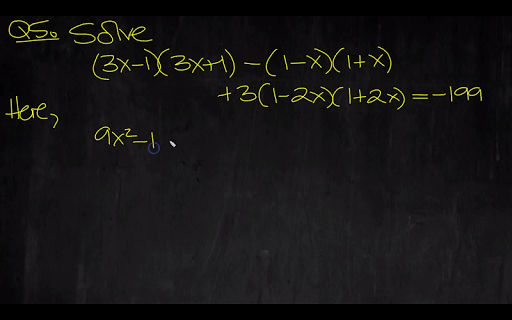 Q5. Solve
(3x-1)(3x+1) - (1-x)(1+x)
+3(1-2x)(1+2x) = -199
Here,
9x²-1